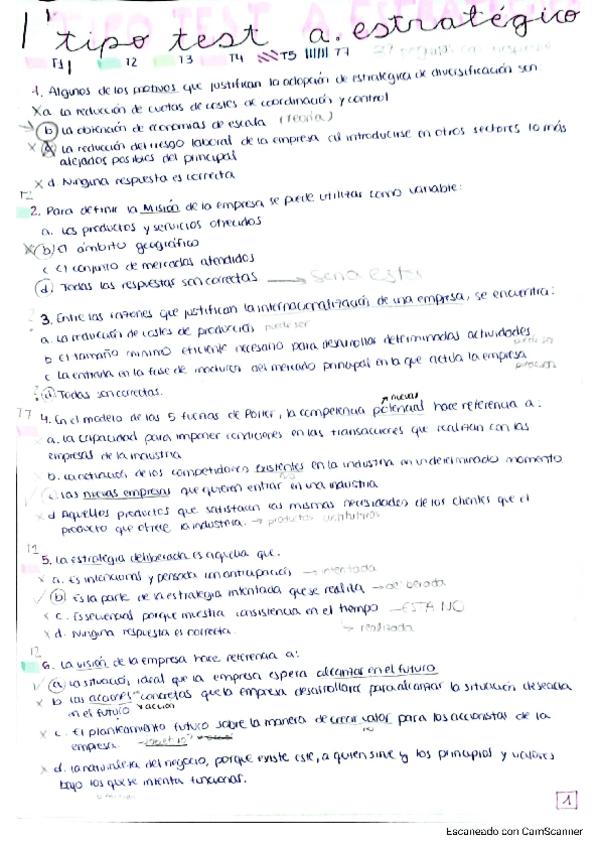 tipo test a. estratégico
T1 T2 T3 T4 T5 T7
1. Algunos de los motivos que justifican la adopción de estrategia de diversificación son:
X a. La reducción de costes de coordinación y control
b) La obtención de economías de escala (teoría)
X La reducción del riesgo laboral de la empresa al introducirse en otros sectores lo más
alejados posibles del principal
X d. Ninguna respuesta es correcta
T2
2. Para definir la Misión de la empresa se puede utilizar como variable:
a. Los productos y servicios ofrecidos
X b) El ámbito geográfico
c El conjunto de mercados atendidos
d. Todas las respuestas son correctas → seria esta
3. Entre las razones que justifican la internacionalización de una empresa, se encuentra:
a. La reducción de costes de producción puede ser
b El tamaño mínimo eficiente necesario para desarrollar determinadas actividades
c La entrada en la fase de madurez del mercado principal en la que actúa la empresa
d. Todas son correctas.
nuevas
T7 4. En el modelo de las 5 fuerzas de Porter, la competencia potencial hace referencia a:
a. La capacidad para imponer condiciones en las transacciones que realizan con las
empresas de la industria
b. La actuación de los competidores existentes en la industria en un determinado momento
c. Las nuevas empresas que quieren entrar en una industria
d Aquellos productos que satisfacen las mismas necesidades de los clientes que el
producto que ofrece la industria. → productos sustitutivos
T1
5. La estrategia deliberada es aquella que:
X a. Es intencional y pensada con anticipación → intentada
b Es la parte de la estrategia intentada que se realiza → deliberada
X c. Es secuencial porque muestra consistencia en el tiempo → ESTA NO
X d. Ninguna respuesta es correcta. → realizada
T2
6. La visión de la empresa hace referencia a:
a La situación ideal que la empresa espera alcanzar en el futuro
X b Las acciones concretas que la empresa desarrollará para alcanzar la situación deseada
en el futuro X acción
X c. El planteamiento futuro sobre la manera de crear valor para los accionistas de la
empresa. objetivo
X d. La naturaleza del negocio, porque existe este, a quien sirve y los principios y valores
bajo los que se intenta funcionar.
1
Escaneado con CamScanner